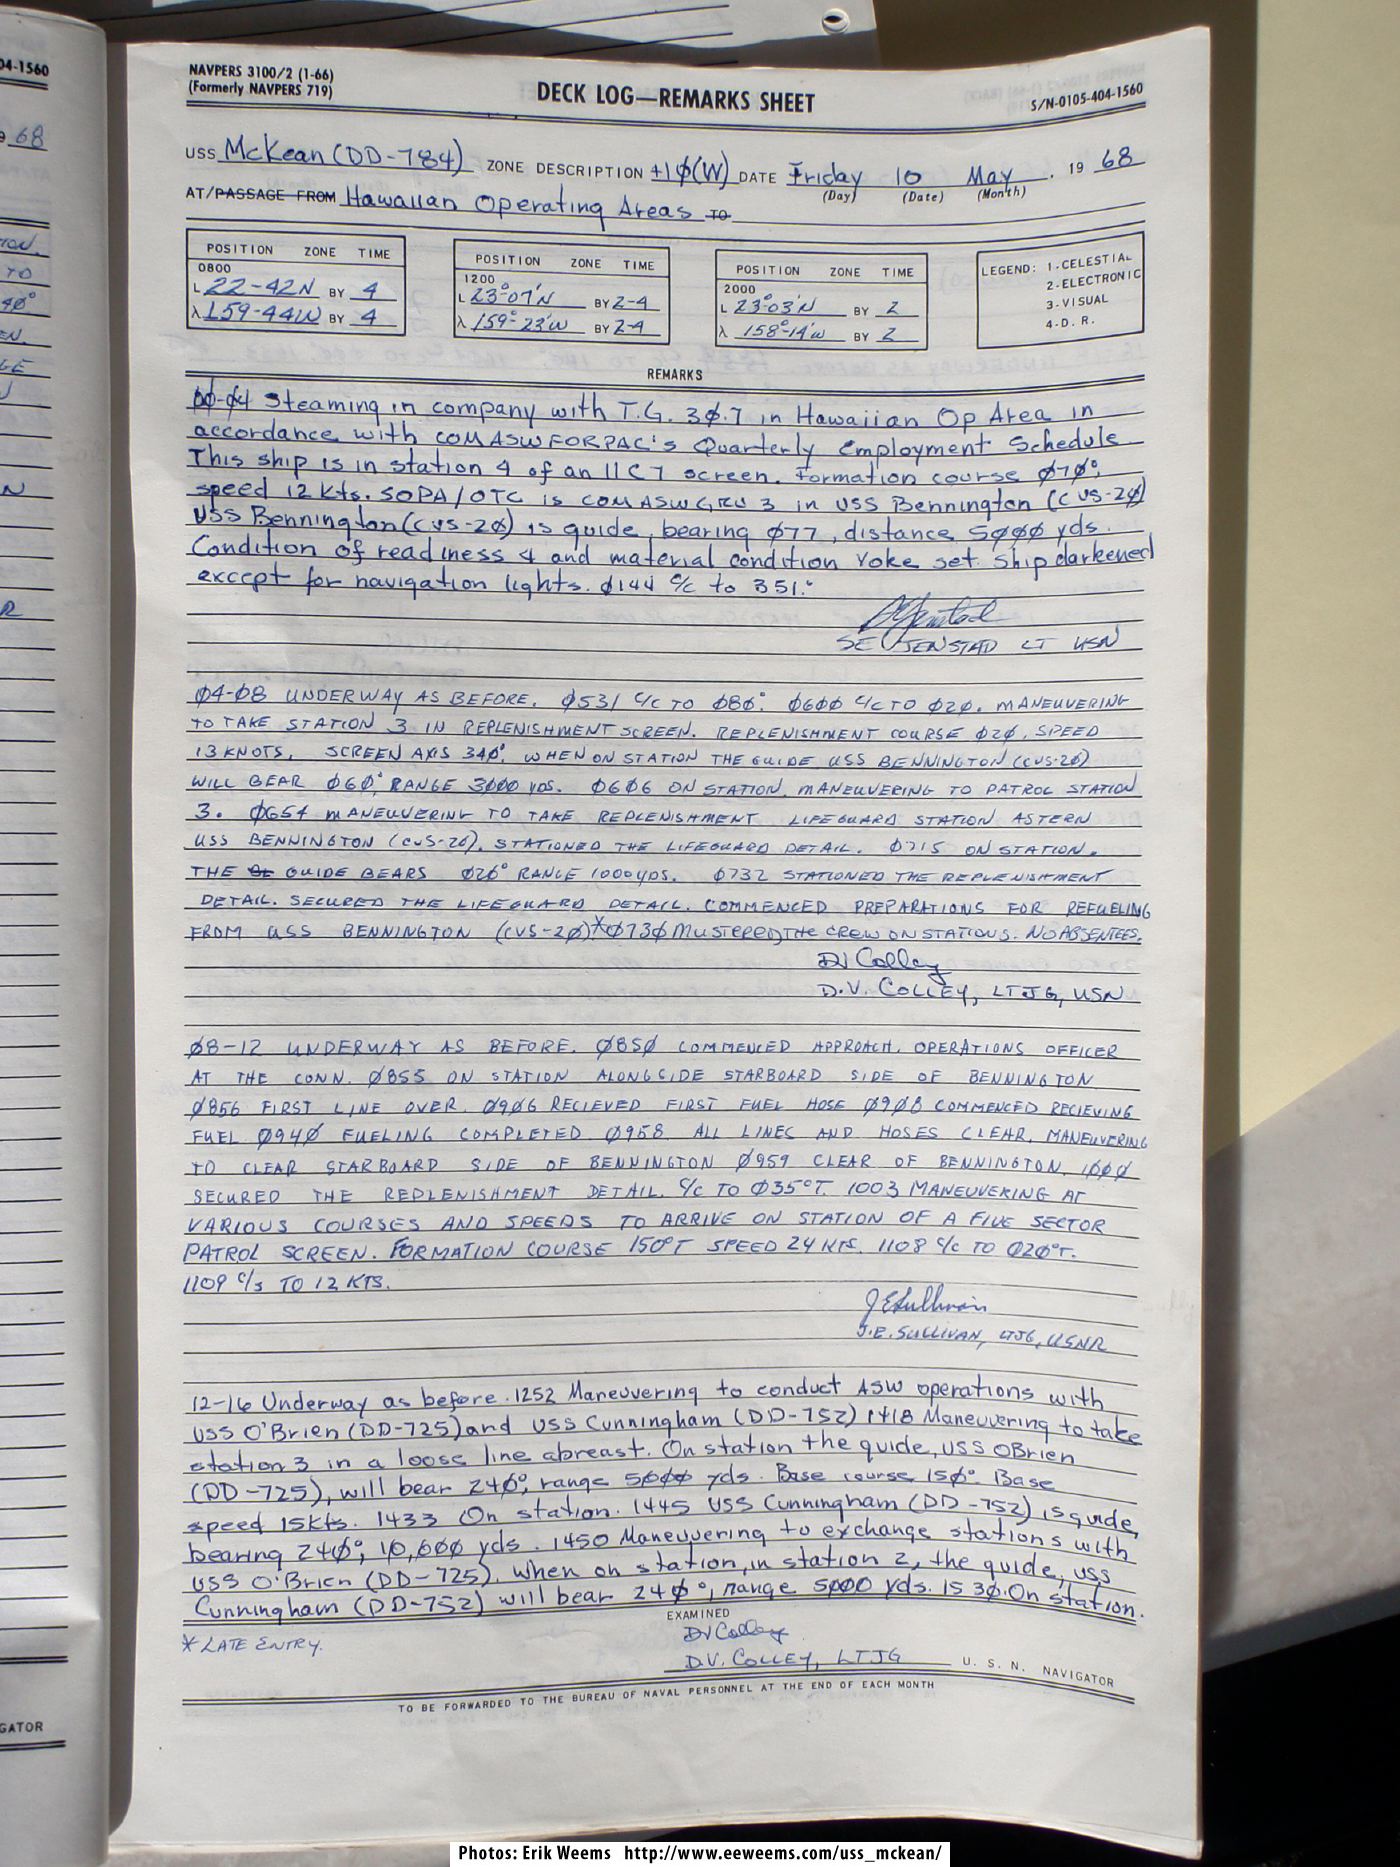 04-1560
68
NAVPERS 3100/2 (1-66)
(Formerly NAVPERS 719)
DECK LOG—REMARKS SHEET
S/N-0105-404-1560
USS McKean (DD-784) ZONE DESCRIPTION +1Ø(W) DATE Friday 10 May . 19 68
(Day) (Date) (Month)
AT/PASSAGE FROM Hawaiian Operating Areas TO
POSITION ZONE TIME
0800
L 22-42N BY 4
λ 159-44W BY 4
POSITION ZONE TIME
1200
L 23°-07'N BY 2-4
λ 159°-23'W BY 2-4
POSITION ZONE TIME
2000
L 23°-03'N BY 2
λ 158°-14'W BY 2
LEGEND: 1-CELESTIAL
2-ELECTRONIC
3-VISUAL
4-D. R.
REMARKS
ØØ-Ø4 Steaming in company with T.G. 3Ø.7 in Hawaiian Op Area in
accordance with COMASWFORPAC's Quarterly Employment Schedule
This ship is in station 4 of an 11C7 screen. Formation course Ø7Ø°,
speed 12 Kts. SOPA/OTC is COMASWGRU 3 in USS Bennington (CVS-2Ø)
USS Bennington (CVS-2Ø) is guide, bearing Ø77, distance 5ØØØ yds.
Condition of readiness 4 and material condition Yoke set. Ship darkened
except for navigation lights. Ø144 C/C to 351.°
SE JENSTAD LT USN
Ø4-Ø8 UNDERWAY AS BEFORE. Ø531 C/C TO Ø8Ø°. Ø6ØØ C/C TO Ø2Ø. MANEUVERING
TO TAKE STATION 3 IN REPLENISHMENT SCREEN. REPLENISHMENT COURSE Ø2Ø, SPEED
13 KNOTS, SCREEN AXIS 34Ø°. WHEN ON STATION THE GUIDE USS BENNINGTON (CVS-2Ø)
WILL BEAR Ø6Ø°, RANGE 3ØØØ YDS. Ø6Ø6 ON STATION. MANEUVERING TO PATROL STATION
3. Ø654 MANEUVERING TO TAKE REPLENISHMENT LIFEGUARD STATION ASTERN
USS BENNINGTON (CVS-2Ø). STATIONED THE LIFEGUARD DETAIL. Ø715 ON STATION.
THE GUIDE BEARS Ø2Ø° RANGE 1000 YDS. Ø732 STATIONED THE REPLENISHMENT
DETAIL. SECURED THE LIFEGUARD DETAIL. COMMENCED PREPARATIONS FOR REFUELING
FROM USS BENNINGTON (CVS-2Ø)*Ø73Ø MUSTERED THE CREW ON STATIONS. NO ABSENTEES.
DV Colley
D.V. COLLEY, LTJG, USN
Ø8-12 UNDERWAY AS BEFORE. Ø85Ø COMMENCED APPROACH. OPERATIONS OFFICER
AT THE CONN. Ø855 ON STATION ALONGSIDE STARBOARD SIDE OF BENNINGTON
Ø856 FIRST LINE OVER. Ø9Ø6 RECIEVED FIRST FUEL HOSE Ø9Ø8 COMMENCED RECIEVING
FUEL Ø94Ø FUELING COMPLETED. Ø958 ALL LINES AND HOSES CLEAR. MANEUVERING
TO CLEAR STARBOARD SIDE OF BENNINGTON Ø959 CLEAR OF BENNINGTON. 1ØØØ
SECURED THE REPLENISHMENT DETAIL. C/C TO Ø35°T. 1003 MANEUVERING AT
VARIOUS COURSES AND SPEEDS TO ARRIVE ON STATION OF A FIVE SECTOR
PATROL SCREEN. FORMATION COURSE 150°T SPEED 24 KTS. 1108 C/C TO Ø2Ø°T.
1109 C/S TO 12 KTS.
J E Sullivan
J.E. SULLIVAN, LTJG, USNR
12-16 Underway as before. 1252 Maneuvering to conduct ASW operations with
USS O'Brien (DD-725) and USS Cunningham (DD-752) 1418 Maneuvering to take
station 3 in a loose line abreast. On station the guide, USS OBrien
(DD-725), will bear 24Ø°, range 5ØØØ yds. Base course 15Ø°. Base
speed 15kts. 1433 On station. 1445 USS Cunningham (DD-752) is guide,
bearing 24Ø°, 1Ø,ØØØ yds. 1450 Maneuvering to exchange stations with
USS O'Brien (DD-725). When on station, in station 2, the guide, USS
Cunningham (DD-752) will bear 24Ø°, range 5ØØØ yds. 153Ø On station.
EXAMINED
* LATE ENTRY.
DV Colley
D.V. COLLEY, LTJG U. S. N. NAVIGATOR
TO BE FORWARDED TO THE BUREAU OF NAVAL PERSONNEL AT THE END OF EACH MONTH
GATOR
Photos: Erik Weems http://www.eeweems.com/uss_mckean/